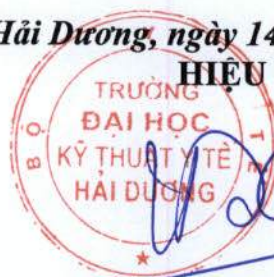 Hải Dương, ngày 14
HIỆU
TRƯỜNG
ĐẠI HỌC
KỸ THUẬT Y TẾ
HẢI DƯƠNG
BỘ
Y TẾ